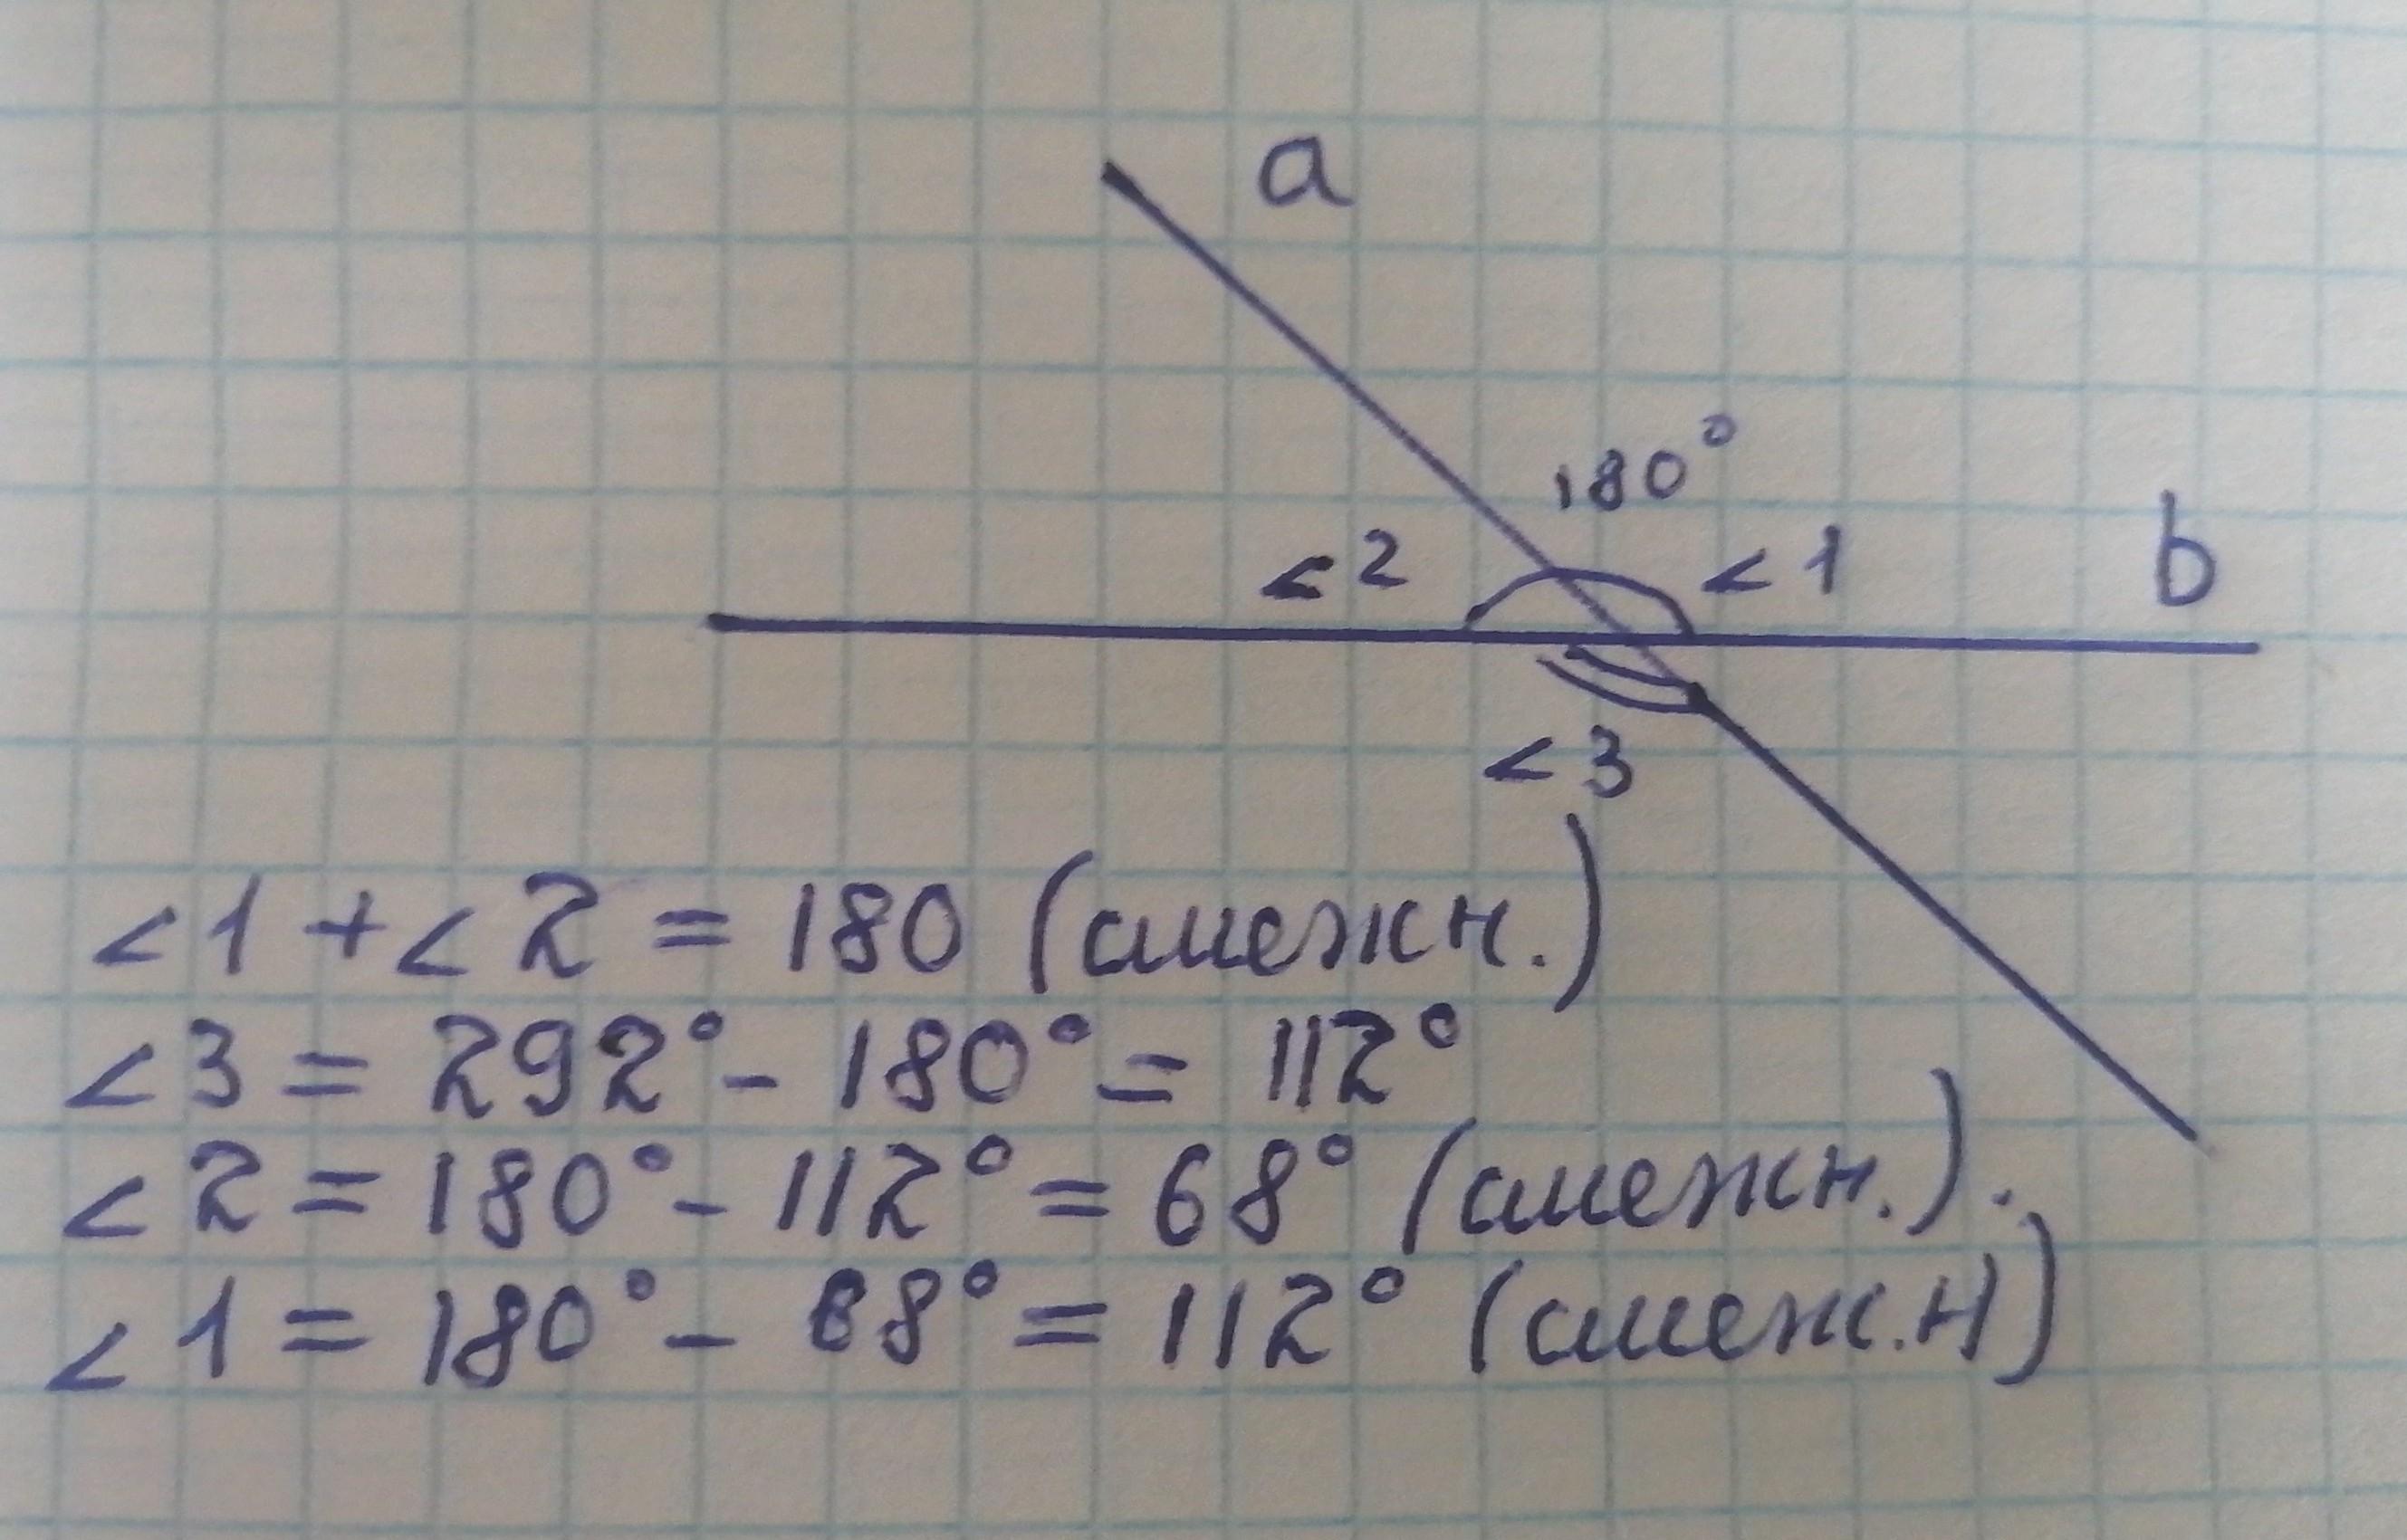 a
180°
<2
<1
b
<3
<1 + <2 = 180 (смежн.)
<3 = 292° - 180° = 112°
<2 = 180° - 112° = 68° (смежн.).
<1 = 180° - 68° = 112° (смеж.н)